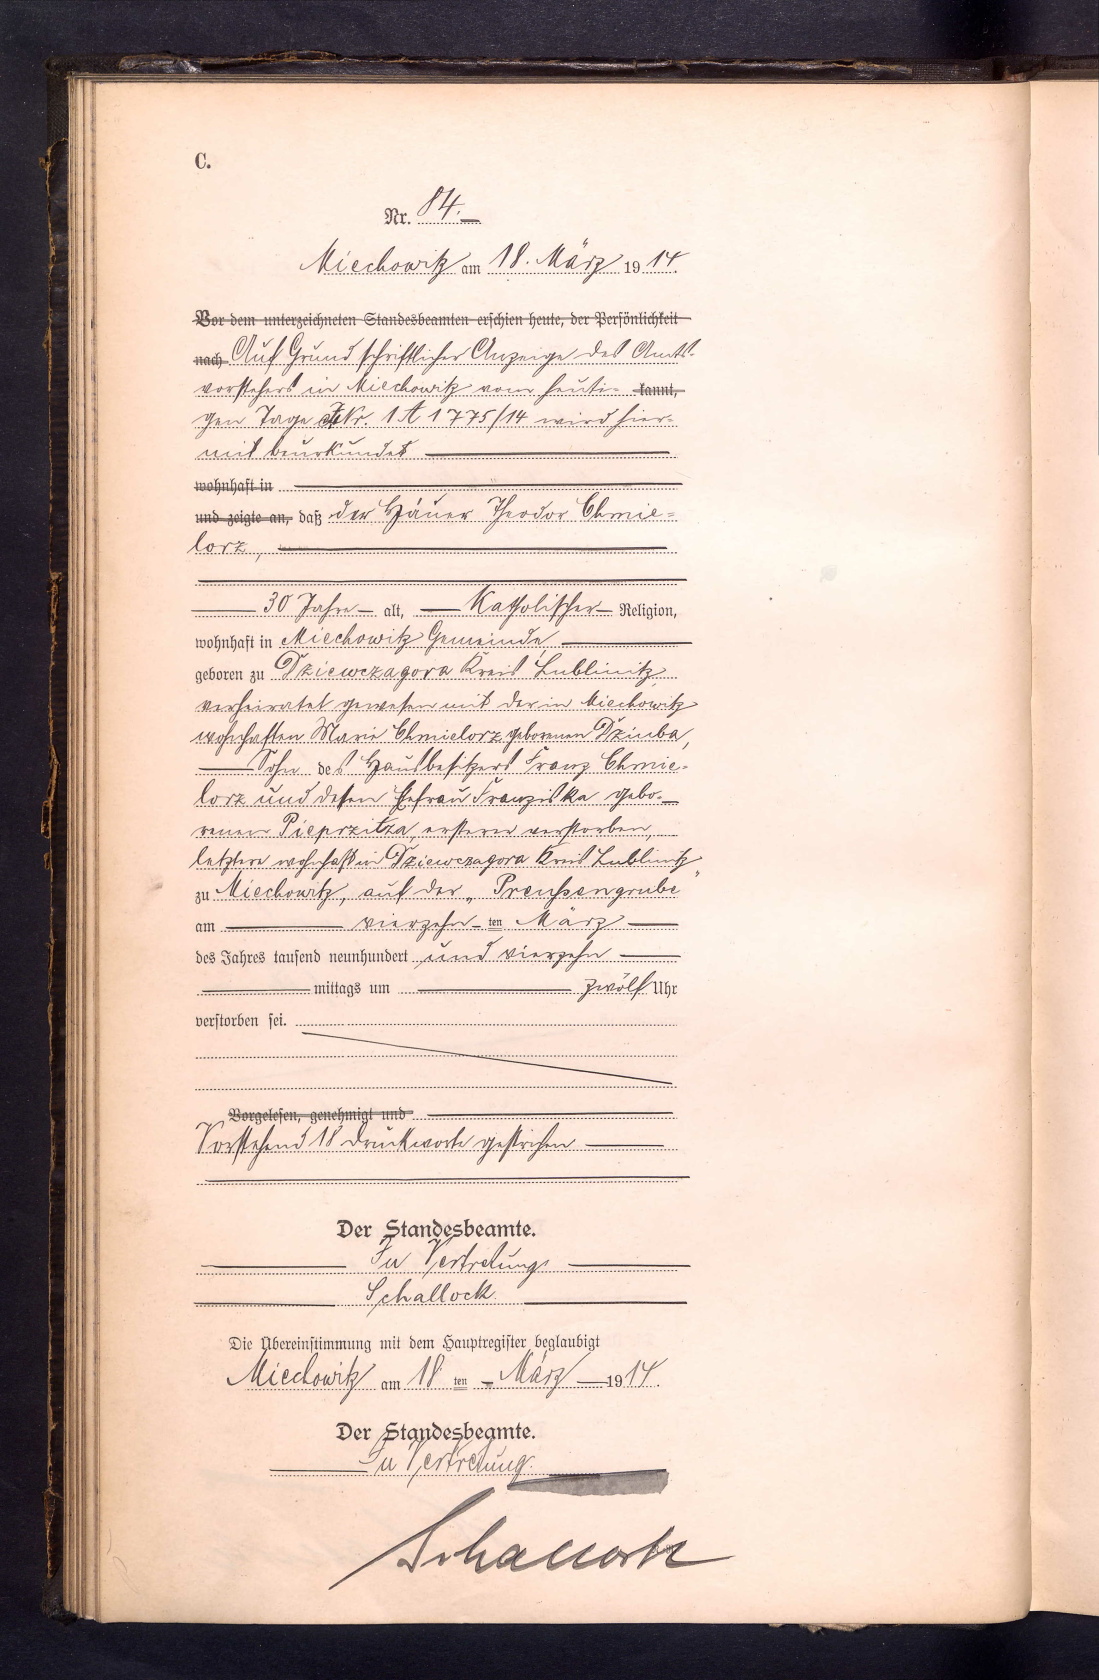 C.
Nr. 84.
Miechowitz am 18. März 1914.
Vor dem unterzeichneten Standesbeamten erschien heute, der Persönlichkeit
nach Auf Grund schriftlicher Anzeige des Amts-
vorstehers in Miechowitz vom heuti- kannt,
gen Tage Nr. 1 A 1775/14 wird hier-
mit beurkundet
wohnhaft in
und zeigte an, daß der Häuer Theodor Chmie-
lorz,
30 Jahre alt, Katholischer Religion,
wohnhaft in Miechowitz Gemeinde,
geboren zu Dziewczagora Kreis Lublinitz,
verheiratet gewesen mit der in Miechowitz
wohnhaften Marie Chmielorz geborenen Dziuba,
Sohn des Hausbesitzers Franz Chmie-
lorz und dessen Ehefrau Franziska gebo-
renen Pieprzitza, ersterer verstorben,
letztere wohnhaft in Dziewczagora Kreis Lublinitz
zu Miechowitz, auf der „Preußengrube"
am vierzehnten März
des Jahres tausend neunhundert und vierzehn
mittags um zwölf Uhr
verstorben sei.
Vorgelesen, genehmigt und
Vorstehend 18 Druckworte gestrichen
Der Standesbeamte.
In Vertretung
Schallock
Die Übereinstimmung mit dem Hauptregister beglaubigt
Miechowitz am 18 ten März 1914.
Der Standesbeamte.
In Vertretung.
Schallock